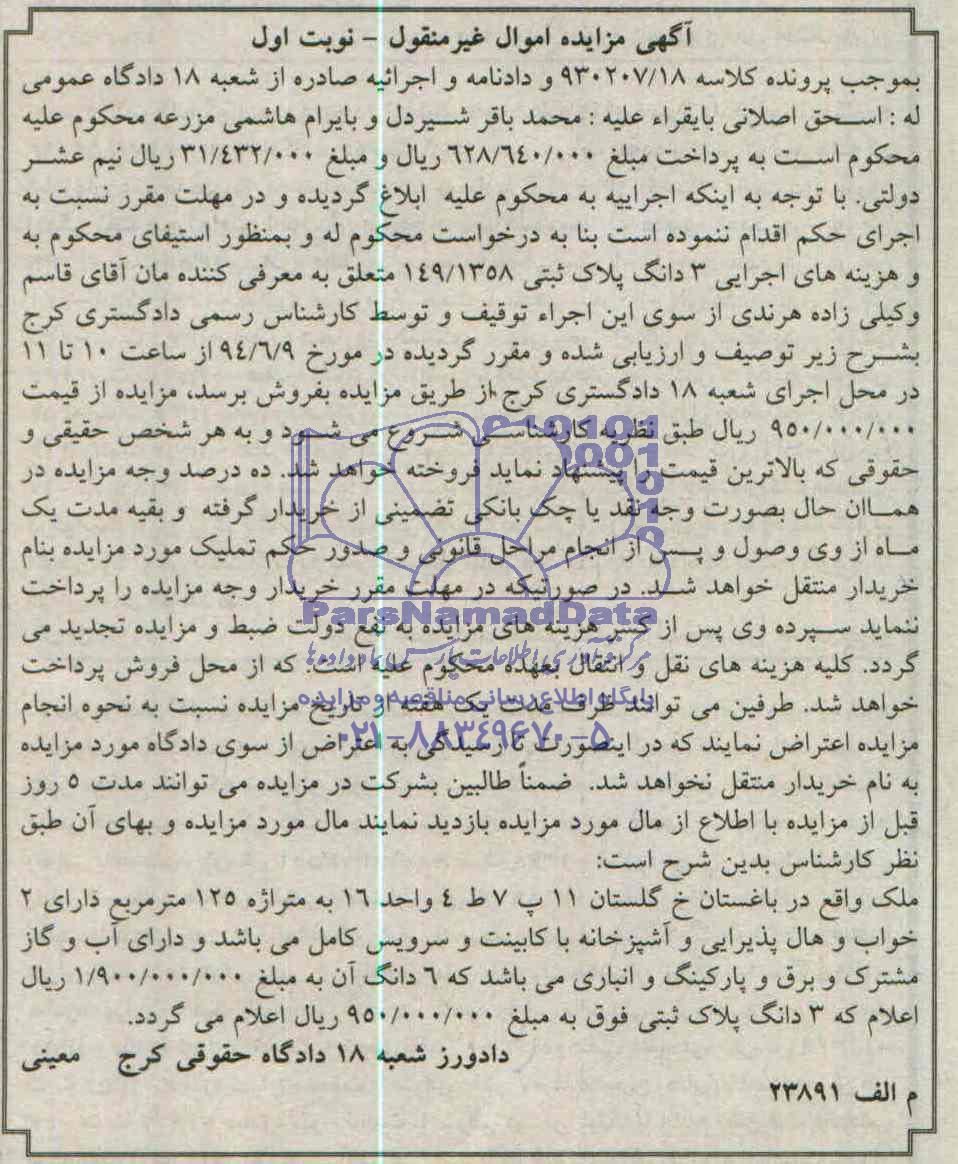 آگهی مزایده اموال غیرمنقول - نوبت اول
بموجب پرونده کلاسه ۹۳۰۲۰۷/۱۸ و دادنامه و اجرائیه صادره از شعبه ۱۸ دادگاه عمومی
له : اسحق اصلانی بایقراء علیه : محمد باقر شیردل و بایرام هاشمی مزرعه محکوم علیه
محکوم است به پرداخت مبلغ ٦۲۸/٦٤۰/۰۰۰ ریال و مبلغ ۳۱/٤۳۲/۰۰۰ ریال نیم عشر
دولتی. با توجه به اینکه اجراییه به محکوم علیه ابلاغ گردیده و در مهلت مقرر نسبت به
اجرای حکم اقدام ننموده است بنا به درخواست محکوم له و بمنظور استیفای محکوم به
و هزینه های اجرایی ۳ دانگ پلاک ثبتی ۱٤۹/۱۳٥۸ متعلق به معرفی کننده مان آقای قاسم
وکیلی زاده هرندی از سوی این اجراء توقیف و توسط کارشناس رسمی دادگستری کرج
بشرح زیر توصیف و ارزیابی شده و مقرر گردیده در مورخ ۹٤/٦/۹ از ساعت ۱۰ تا ۱۱
در محل اجرای شعبه ۱۸ دادگستری کرج از طریق مزایده بفروش برسد، مزایده از قیمت
۹٥۰/۰۰۰/۰۰۰ ریال طبق نظریه کارشناسی شروع می شود و به هر شخص حقیقی و
حقوقی که بالاترین قیمت را پیشنهاد نماید فروخته خواهد شد. ده درصد وجه مزایده در
همان حال بصورت وجه نقد یا چک بانکی تضمینی از خریدار گرفته و بقیه مدت یک
ماه از وی وصول و پس از انجام مراحل قانونی و صدور حکم تملیک مورد مزایده بنام
خریدار منتقل خواهد شد. در صورتیکه در مهلت مقرر خریدار وجه مزایده را پرداخت
ننماید سپرده وی پس از کسر هزینه های مزایده به نفع دولت ضبط و مزایده تجدید می
گردد. کلیه هزینه های نقل و انتقال بعهده محکوم علیه است. که از محل فروش پرداخت
خواهد شد. طرفین می توانند ظرف مدت یک هفته از تاریخ مزایده نسبت به نحوه انجام
مزایده اعتراض نمایند که در اینصورت تا رسیدگی به اعتراض از سوی دادگاه مورد مزایده
به نام خریدار منتقل نخواهد شد. ضمناً طالبین بشرکت در مزایده می توانند مدت ٥ روز
قبل از مزایده با اطلاع از مال مورد مزایده بازدید نمایند مال مورد مزایده و بهای آن طبق
نظر کارشناس بدین شرح است:
ملک واقع در باغستان خ گلستان ۱۱ پ ۷ ط ٤ واحد ۱٦ به متراژه ۱۲٥ مترمربع دارای ۲
خواب و هال پذیرایی و آشپزخانه با کابینت و سرویس کامل می باشد و دارای آب و گاز
مشترک و برق و پارکینگ و انباری می باشد که ٦ دانگ آن به مبلغ ۱/۹۰۰/۰۰۰/۰۰۰ ریال
اعلام که ۳ دانگ پلاک ثبتی فوق به مبلغ ۹٥۰/۰۰۰/۰۰۰ ریال اعلام می گردد.
دادورز شعبه ۱۸ دادگاه حقوقی کرج معینی
م الف ۲۳۸۹۱
ParsNamadData
مرکز فرآوری اطلاعات پارس نماد داده‌ها
پایگاه اطلاع رسانی مناقصه و مزایده
۰۲۱-۸۸۳٤۹٦۷۰-۵